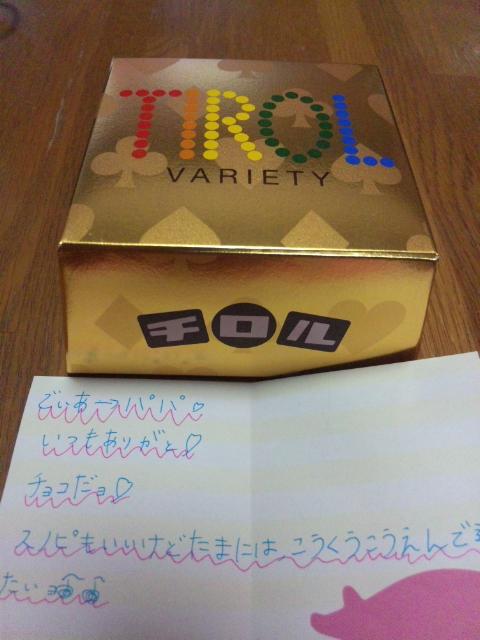 TIROL
VARIETY
チロル
でぃあースパパ♡
いつもありがと♡
チョコだョ♡
もいいけどたまには、こうくうこうえんで
たい